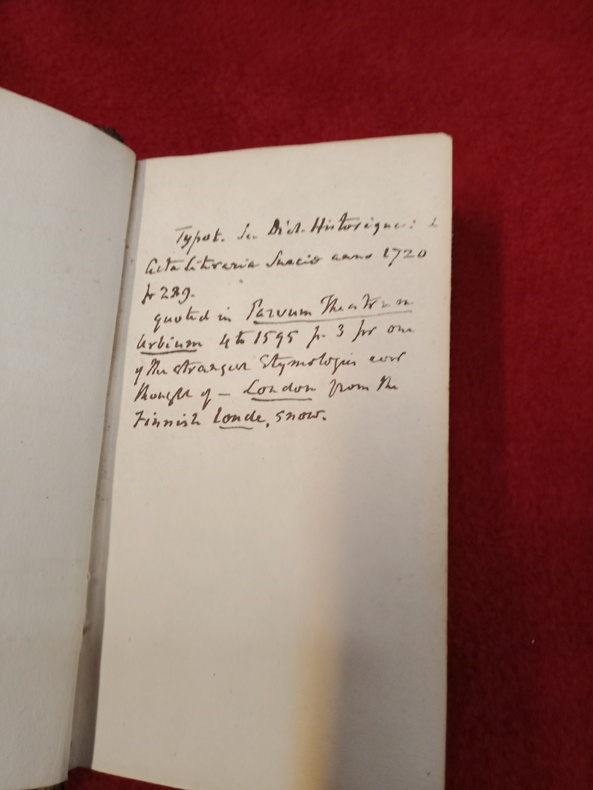 Typot. See Dict. Historique: &
Acta Literaria Sueciæ anno 1720
p 289.
quoted in Parvum Theatrum
Urbium 4to 1595 p. 3 for one
of the strangest Etymologies ever
thought of – London from the
Finnish Londe, snow.